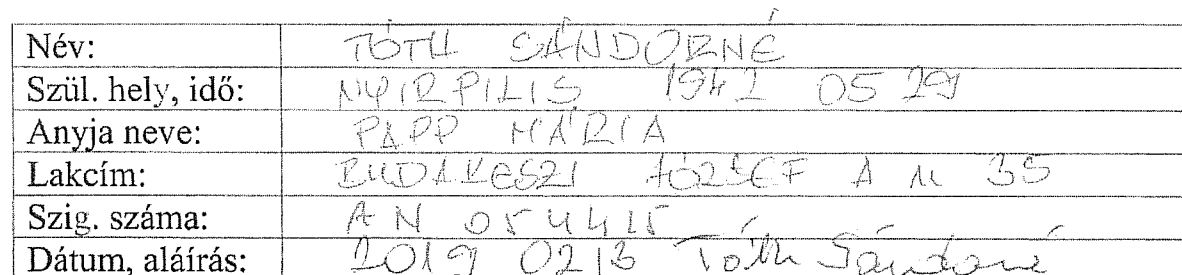 Név: TÓTH SÁNDORNÉ
Szül. hely, idő: NYIRPILIS 1942 05 29
Anyja neve: PAPP MÁRIA
Lakcím: BUDAKESZI JÓZSEF A u 35
Szig. száma: AN 054415
Dátum, aláírás: 2019 02 13 Tóth Sándorné